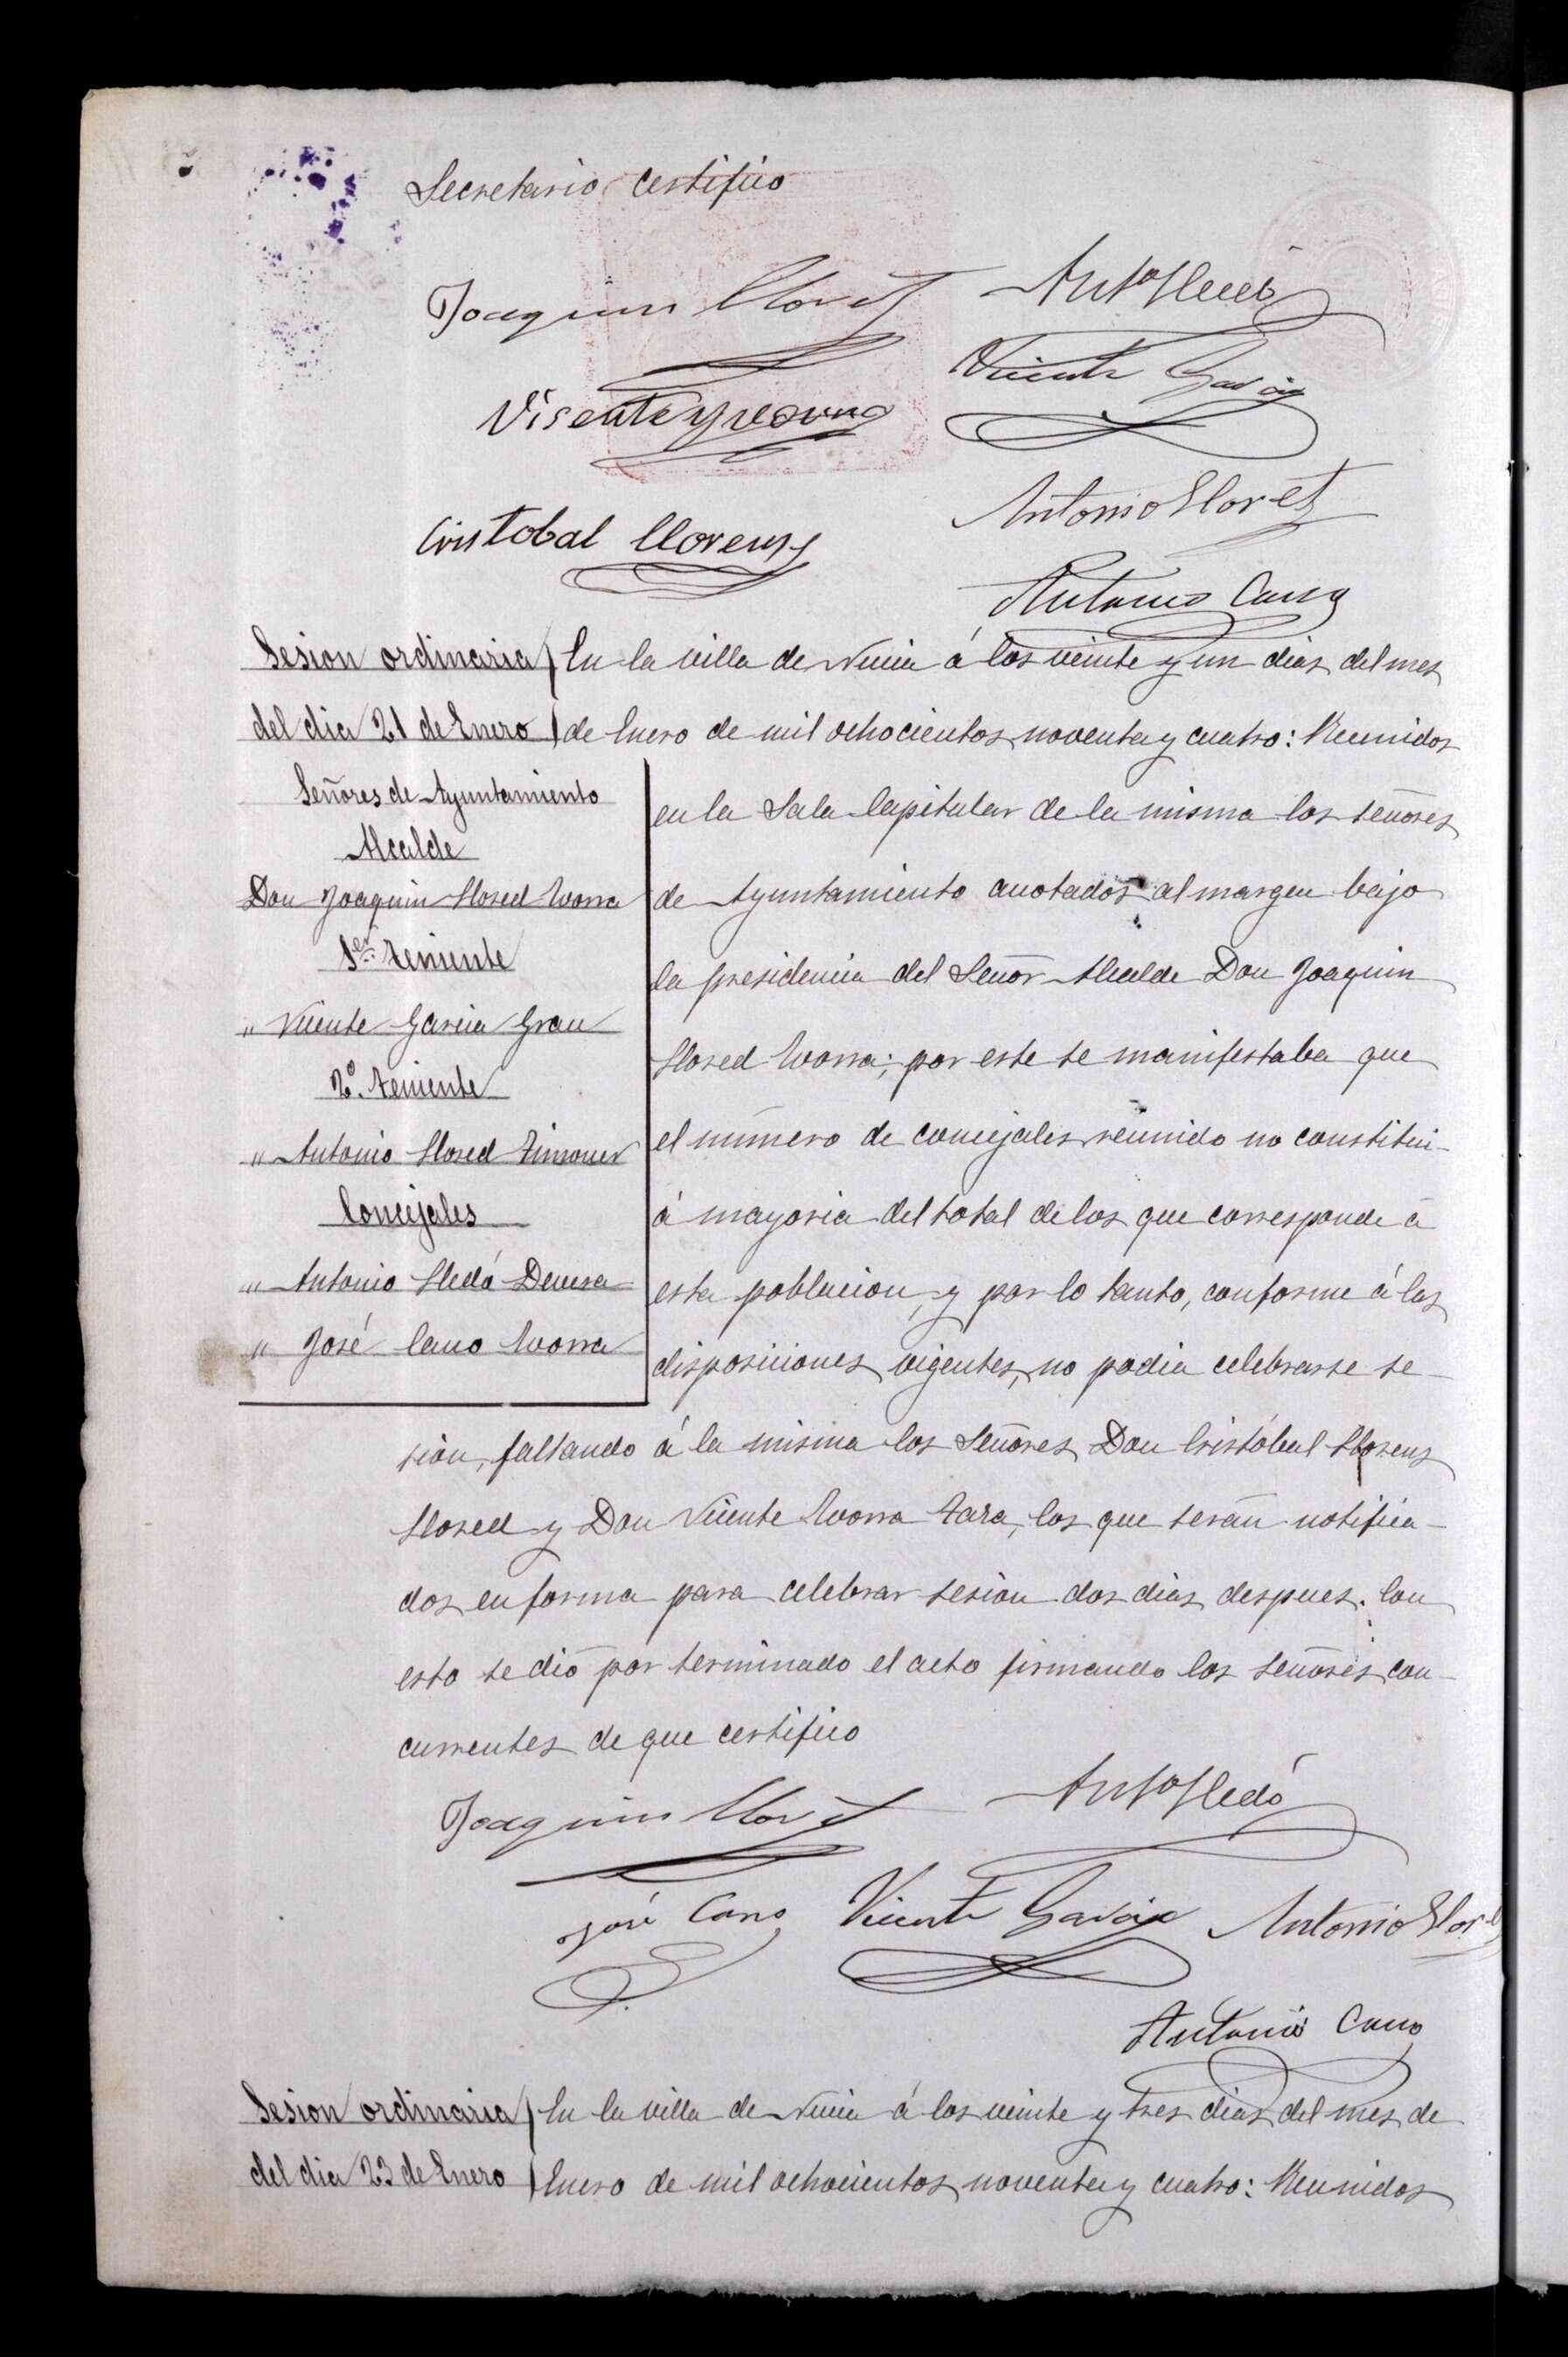 Secretario certifico
Joaquin Lloret
Antº Lledó
Vicente Garcia
Visente Yvorra
Antonio Lloret
Cristobal Llorens
Antonio Cano
Sesion ordinaria
del dia 21 de Enero
Señores de Ayuntamiento
Alcalde
Don Joaquin Llored Ivorra
1er teniente
" Vicente Garcia Grau
2º teniente
" Antonio Llored Timoner
Concejales
" Antonio Lledó Devesa
" José Cano Ivorra
En la villa de Nucia á los veinte y un dias del mes
de Enero de mil ochocientos noventa y cuatro: Reunidos
en la Sala Capitular de la misma los señores
de Ayuntamiento anotados al margen bajo
la presidencia del Señor Alcalde Don Joaquin
Llored Ivorra; por este se manifestaba que
el número de concejales reunido no constitui-
á mayoria del total de los que corresponde á
esta poblacion, y por lo tanto, conforme á las
disposiciones vigentes, no podia celebrarse se-
sion, faltando á la misma los Señores Don Cristóbal Llorens
Llored y Don Vicente Ivorra Zara, los que serán notifica-
dos en forma para celebrar sesion dos dias despues. Con
esto se dió por terminado el acto firmando los señores con-
currentes de que certifico
Joaquin Lloret
Antº Lledó
José Cano Vicente Garcia Antonio Lloret
Antonio Cano
Sesion ordinaria
del dia 23 de Enero
En la villa de Nucia á los veinte y tres dias del mes de
Enero de mil ochocientos noventa y cuatro: Reunidos